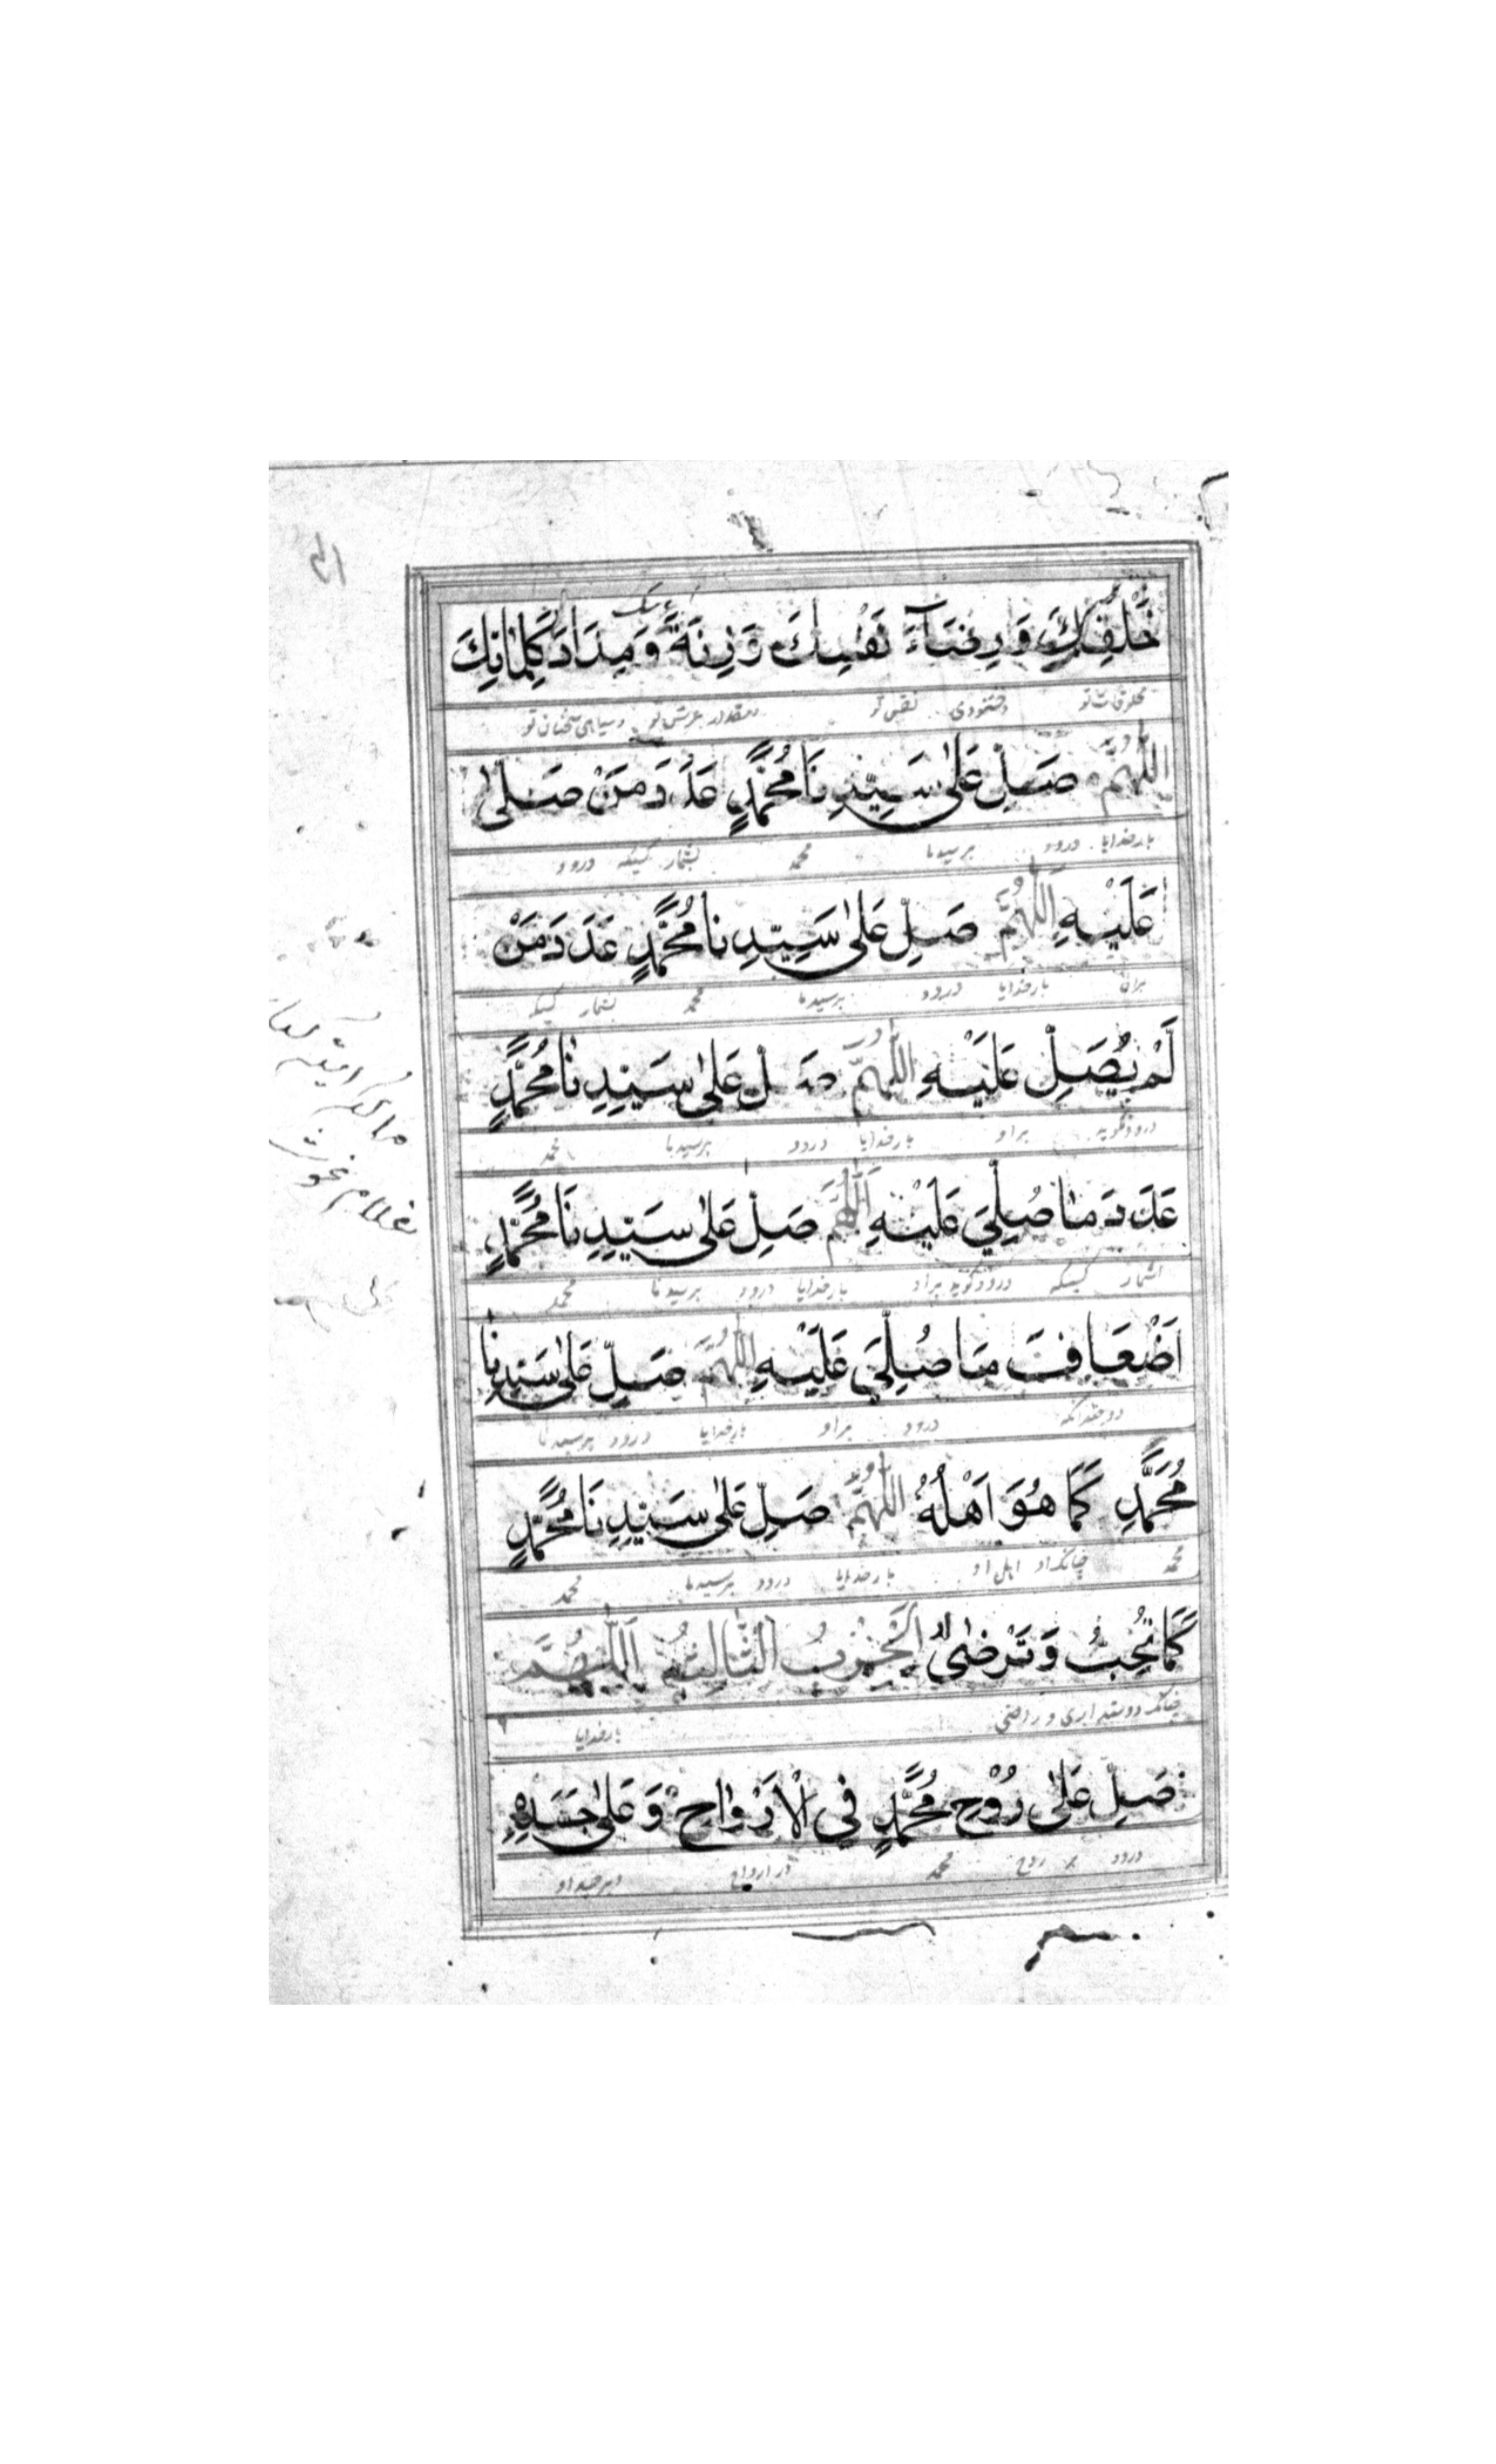 خَلْقِكَ وَرِضَاءَ نَفْسِكَ وَزِنَةَ وَمِدَادَ كَلِمَاتِكَ
مخلوقات تو وخشنودی نفس تو ومقدار عرش تو وسیاهی سخنان تو
اللّٰهُمَّ صَلِّ عَلٰى سَيِّدِنَا مُحَمَّدٍ عَدَدَ مَنْ صَلّٰى
بارخدایا درود برسیدنا محمد بشمار کسیکه درود
عَلَيْهِ اللّٰهُمَّ صَلِّ عَلٰى سَيِّدِنَا مُحَمَّدٍ عَدَدَ مَنْ
بران بارخدایا درود برسیدنا محمد بشمار کسیکه
لَمْ يُصَلِّ عَلَيْهِ اللّٰهُمَّ صَلِّ عَلٰى سَيِّدِنَا مُحَمَّدٍ
درودنگوید براو بارخدایا درود برسیدنا محمد
عَدَدَ مَا صُلِّيَ عَلَيْهِ اللّٰهُمَّ صَلِّ عَلٰى سَيِّدِنَا مُحَمَّدٍ
بشمار کسیکه درودگوید براو بارخدایا درود برسیدنا محمد
اَضْعَافَ مَا صُلِّيَ عَلَيْهِ اللّٰهُمَّ صَلِّ عَلٰى سَيِّدِنَا
دوچندانکه درود براو بارخدایا درود برسیدنا
مُحَمَّدٍ كَمَا هُوَ اَهْلُهُ اللّٰهُمَّ صَلِّ عَلٰى سَيِّدِنَا مُحَمَّدٍ
محمد چنانکه او اهل او بارخدایا درود برسیدنا محمد
كَمَا تُحِبُّ وَتَرْضٰى لَهُ الْحِزْبُ الثَّالِثُ اَللّٰهُمَّ
چنانکه دوستداری و راضی بارخدایا
صَلِّ عَلٰى رُوْحِ مُحَمَّدٍ فِي الْاَرْوَاحِ وَعَلٰى جَسَدِهِ
درود بر روح محمد در ارواح وبرجسد او